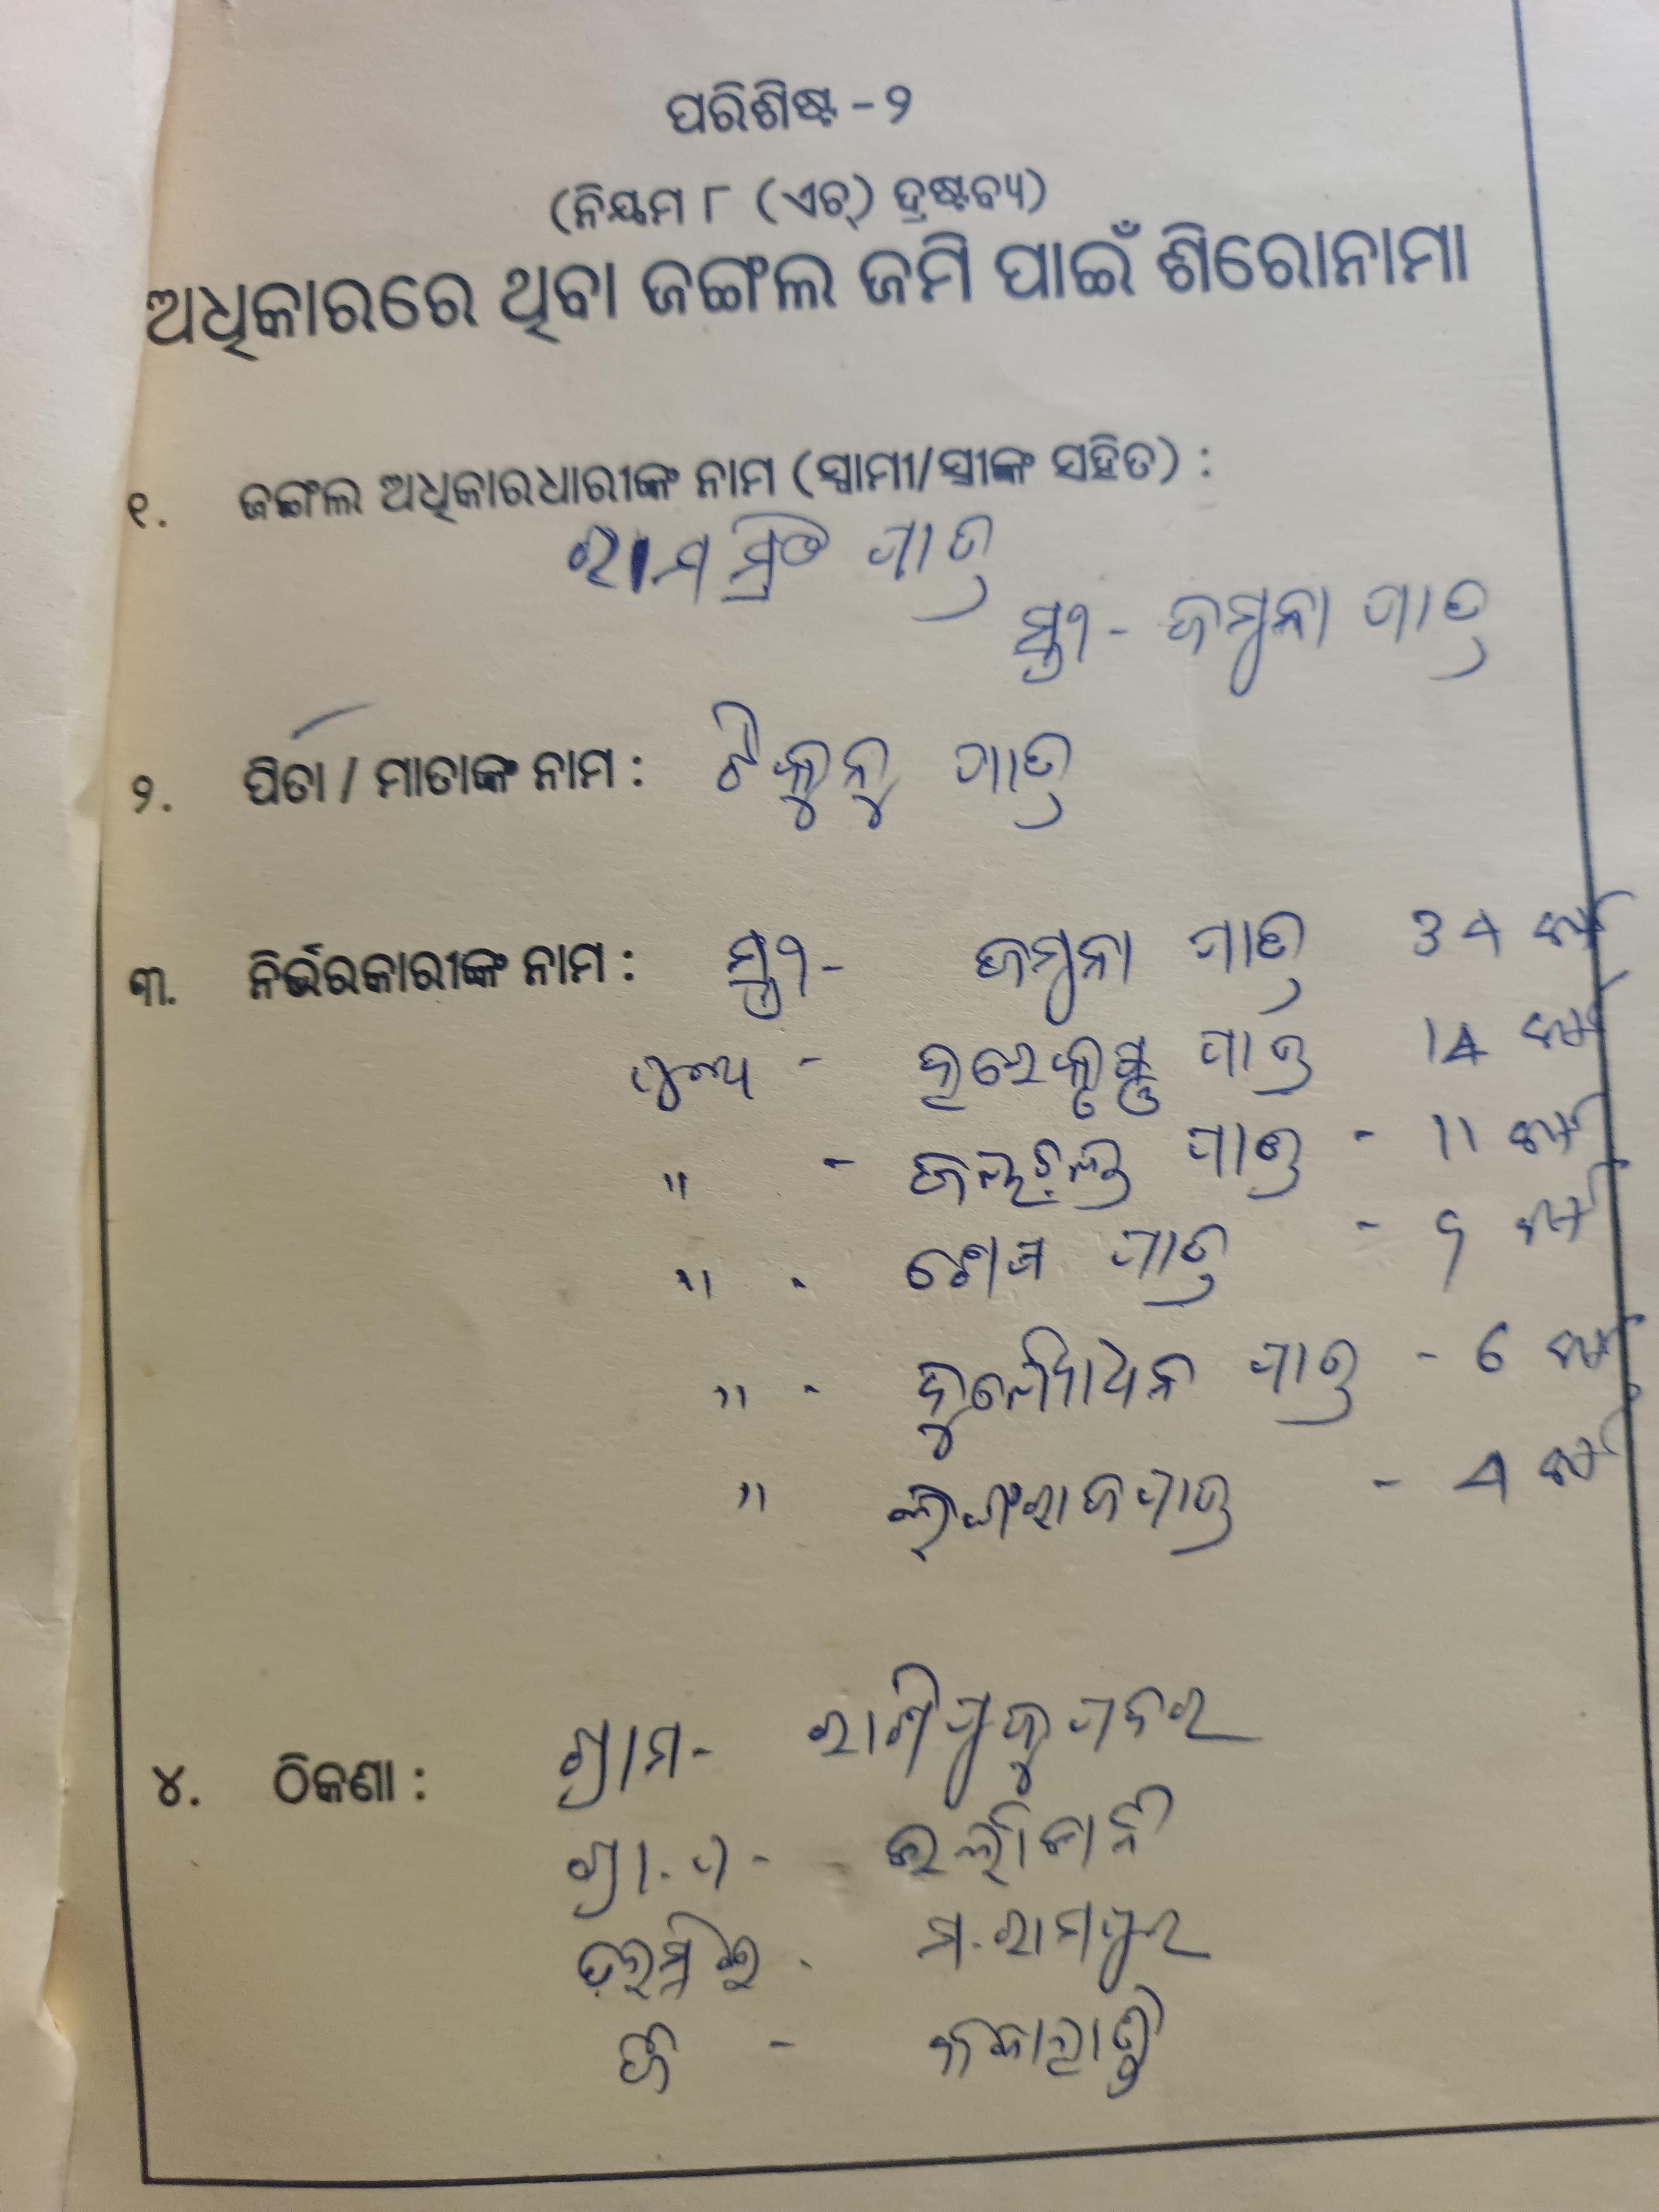 ପରିଶିଷ୍ଟ - ୨
(ନିୟମ ୮ (ଏଚ୍) ଦ୍ରଷ୍ଟବ୍ୟ)
ଅଧିକାରରେ ଥିବା ଜଙ୍ଗଲ ଜମି ପାଇଁ ଶିରୋନାମା
୧. ଜଙ୍ଗଲ ଅଧିକାରଧାରୀଙ୍କ ନାମ (ସ୍ୱାମୀ/ସ୍ତ୍ରୀଙ୍କ ସହିତ) :
ପାତ୍ର
ସ୍ତ୍ରୀ - ଜମୁନା ପାତ୍ର
୨. ପିତା / ମାତାଙ୍କ ନାମ : ଟିକୁନୁ ପାତ୍ର
୩. ନିର୍ଭରକାରୀଙ୍କ ନାମ : ସ୍ତ୍ରୀ - ଜମୁନା ପାତ୍ର 34 ବର୍ଷ
ପୁଅ - ହରେକୃଷ୍ଣ ପାତ୍ର 14 ବର୍ଷ
" - ପାତ୍ର - 11 ବର୍ଷ
" - ପାତ୍ର - 9 ବର୍ଷ
" - ଦୁର୍ଯ୍ୟୋଧନ ପାତ୍ର - 6 ବର୍ଷ
" ଲିଙ୍ଗରାଜ ପାତ୍ର - 4 ବର୍ଷ
୪. ଠିକଣା : ଗ୍ରାମ -
ଗ୍ରା.ପ -
ମ.ରାମପୁର
ଜି - କଳାହାଣ୍ଡି